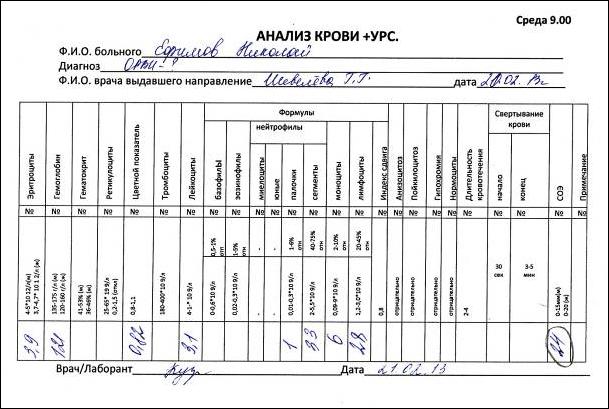 Среда 9.00
АНАЛИЗ КРОВИ +УРС.
Ф.И.О. больного Ефимов Николай
Диагноз ОРВИ-?
Ф.И.О. врача выдавшего направление Шевелёва Г.Г. дата 20.02.13г
Формулы
Свертывание крови
нейтрофилы
Эритроциты Гемоглобин Гематокрит Ретикулоциты Цветной показатель Тромбоциты Лейкоциты базофилы эозинофилы миелоциты юные палочки сегменты моноциты лимфоциты Индекс сдвига Анизоцитоз Пойкилоцитоз Гипохромия Нормоциты Длительность кровотечения начало конец СОЭ Примечание
№ № № № № № № № № № № № № № № № № № № № № № № № №
0,5-1% отн 1-5% отн - - 1-6% отн 40-75% отн 2-10% отн 20-45% отн
4-5*10 12/л(м) 3,7-4,7*10 1 2/л (ж) 135-175 г/л (м) 120-160 г/л (ж) 41-53% (м) 36-46% (ж) 25-65* 19 9/л 0,2-1,5 (откл) 0,8-1,1 180-400*10 9/л 4-1-* 10 9/л 0-0,6*10 9/л 0,02-0,3*10 9/л - - 0,01-0,3*10 9/л 2-5,5*10 9/л 0,09-9*10 9/л 1,2-3,0*10 9/л 0,8 отрицательно отрицательно отрицательно отрицательно 2-4 30 сек 3-5 мин 0-15мм(м) 0-20 (ж)
3,9 121 0,82 3,1 1 33 6 28 24
Врач/Лаборант Дата 21.02.13